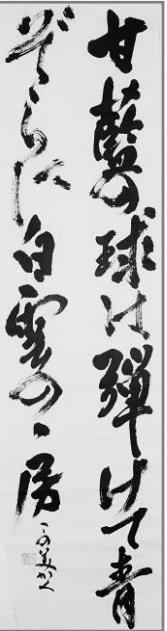 甘藍の球は弾けて青
ぞらに白雲の一房